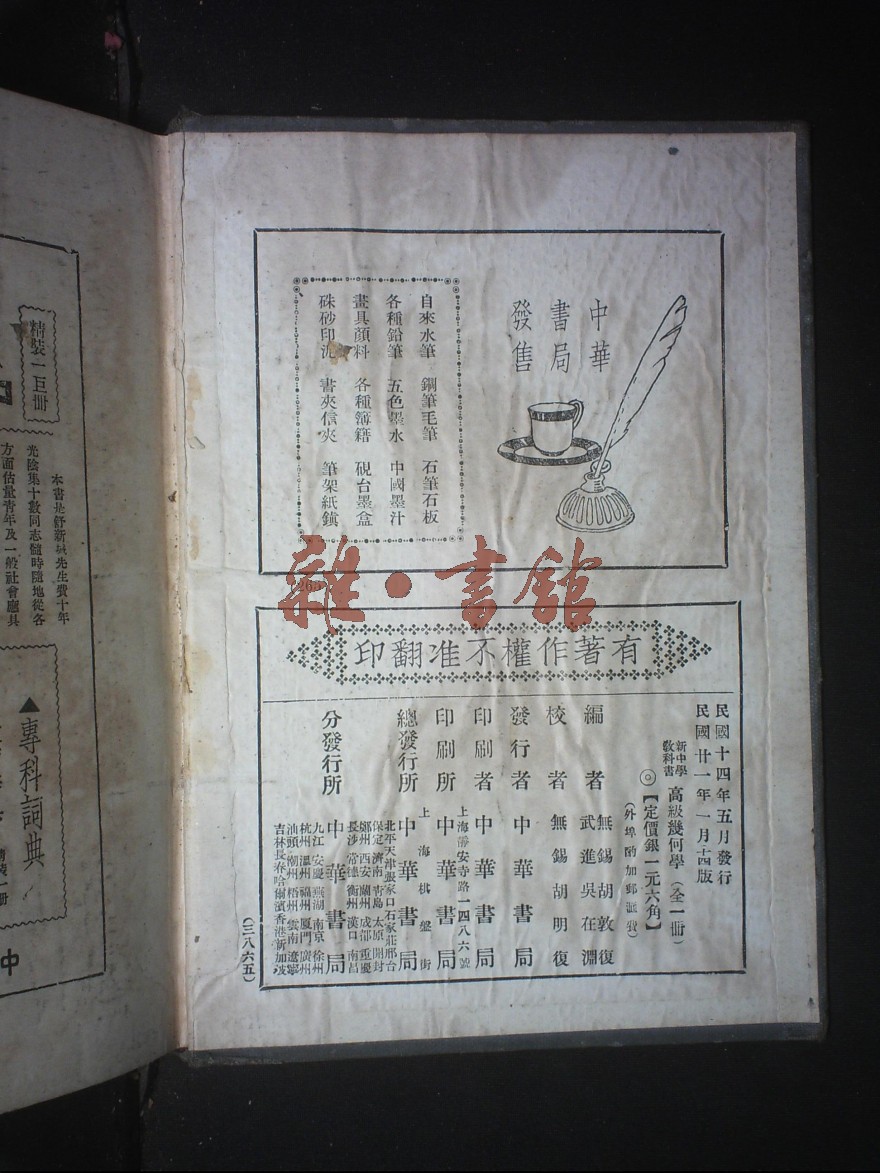 中華
書局
發售
自來水筆 鋼筆毛筆 石筆石板
各種鉛筆 五色墨水 中國墨汁
畫具顏料 各種簿籍 硯台墨盒
硃砂印泥 書夾信夾 筆架紙鎮
雜·書館
有著作權不准翻印
民國十四年五月發行
民國廿一年一月十四版
新中學
教科書 高級幾何學(全一冊)
◎【定價銀一元六角】
(外埠酌加郵匯費)
編者 無錫胡敦復
武進吳在淵
校者 無錫胡明復
發行者 中華書局
印刷者 中華書局
上海靜安寺路一四八六號
印刷所 中華書局
上海棋盤街
總發行所 中華書局
北平天津張家口石家莊邢台
保定濟南青島太原開封
鄭州西安蘭州成都重慶
長沙常德衡州漢口南昌
分發行所 中華書局
九江安慶蕪湖南京徐州
杭州溫州福州廈門廣州
汕頭潮州梧州雲南遼寧
吉林長春哈爾濱香港新加坡
(三八六五)
精裝一巨冊
本書是舒新城先生費十年
光陰集十數同志隨時隨地從各
方面估量青年及一般社會應具
▲專科詞典
中